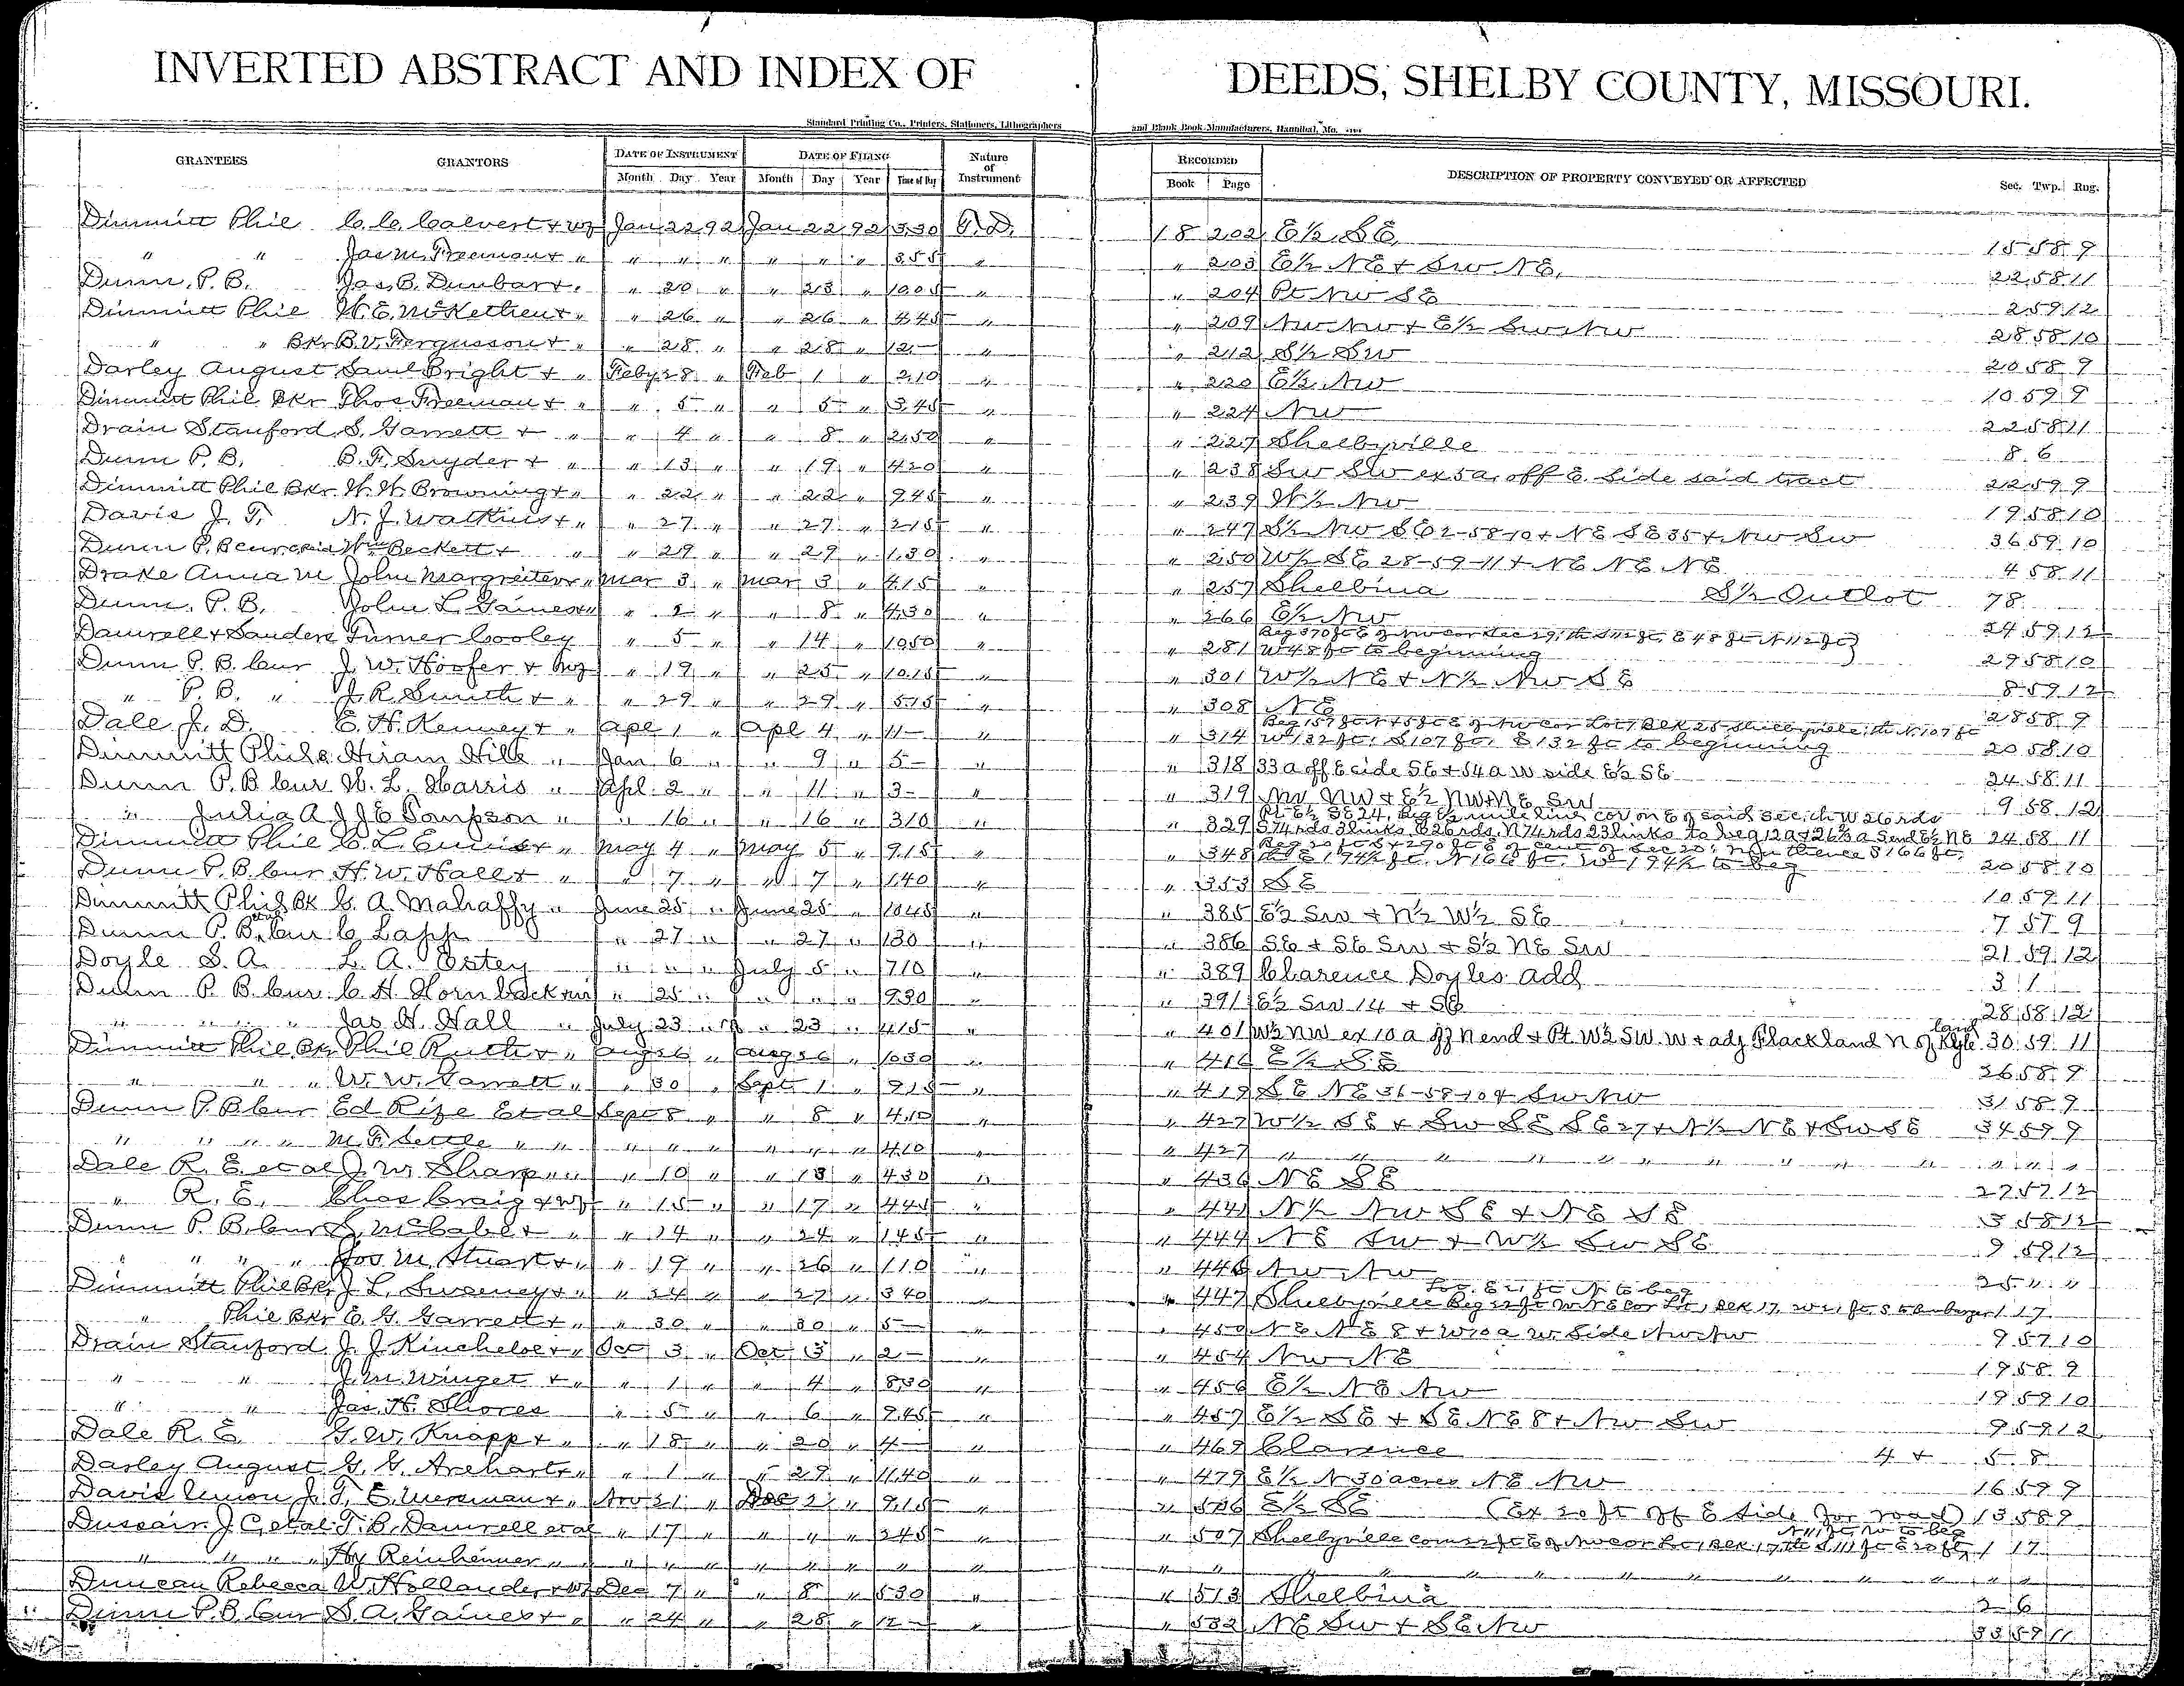 INVERTED ABSTRACT AND INDEX OF DEEDS, SHELBY COUNTY, MISSOURI.
Standard Printing Co., Printers, Stationers, Lithographers and Blank Book Manufacturers, Hannibal, Mo.
GRANTEES GRANTORS DATE OF INSTRUMENT DATE OF FILING Nature of Instrument RECORDED DESCRIPTION OF PROPERTY CONVEYED OR AFFECTED Sec. Twp. Rng.
Month Day Year Month Day Year Time of Day Book Page
Dimmitt Phil C. C. Calvert + wf Jan 22 92 Jan 22 92 3 30 18 202 E½ SE 15 58 9
" " Jas M. Freeman + " " " " " " " 3 55 " " 203 E½ NE + SW NE 22 58 11
Dunn, P. B. Jas. B. Dunbar + " 20 " " 23 " 10 05 " " 204 Pt NW SE 2 59 12
Dimmitt Phil + " " 26 " " 26 " 4 45 " " 209 NW NW + E½ SW NW 28 58 10
" " Bkr B. V. Fergusson + " " 28 " " 28 " 12 - " " 212 S½ SW 20 58 9
Darley August Saml Bright + " Feby " Feb 1 " 2 10 " " 220 E½ NW 10 59 9
Dimmitt Phil Bkr Thos Freeman + " " 5 " " 5 " 3 45 " " 224 NW 22 58 11
Drain Stanford S. Garrett + " " 4 " " 8 " 2 50 " " 227 Shelbyville 8 6
Dunn P. B. B. F. Snyder + " " 13 " " 19 " 4 20 " " 238 SW SW ex 5 a. off E. Side said tract 22 59 9
Dimmitt Phil Bkr W. W. Browning + " " 22 " " 22 " 9 45 " " 239 W½ NW 19 58 10
Davis J. T. N. J. Watkins + " " 27 " " 27 " 2 15 " " 247 S½ NW SE 2-58-10 + NE SE 35 + NW SW 36 59 10
Dunn P. B. Wm Beckett + " " 29 " " 29 " 1 30 " " 250 W½ SE 28-59-11 + NE NE NE 4 58 11
Drake Anna M John Margreiter + " Mar 3 " Mar 3 " 4 15 " " 257 Shelbina S½ Outlot 78
Dunn, P. B. John L. Gaines + " " " " 8 " 4 30 " " 266 E½ NW 24 59 12
Damrell + Sanders Turner Cooley " 5 " " 14 " 10 50 " " 281 W 48 ft to beginning 29 58 10
Dunn P. B. Cur J. W. Hoofer + wf " 19 " " 25 " 10 15 " " 301 W½ NE + N½ NW SE 8 59 12
" P. B. " J. R. Smith + " " 29 " " 29 " 5 15 " " 308 NE 28 58 9
Dale J. D. E. H. Kenney + " Apl 1 " Apl 4 " 11 - " " 314 W 132 ft, S 107 ft, E 132 ft to beginning 20 58 10
Dimmitt Phil Hiram Hills " Jan 6 " " 9 " 5 - " " 318 33 a off E side SE + 54 a W side E½ SE 24 58 11
Dunn P. B cur W. L. Harris " Apl 2 " " 11 " 3 - " " 319 NW NW + E½ NW + NE SW 9 58 12
" Julia A J J E Sampson " " 16 " " 16 " 3 10 " " 329 S 74 rds 3 links E 26 rds, N 74 rds 23 links to beg 24 58 11
Dimmitt Phil C. L. + " May 4 " May 5 " 9 15 " " 348 E 194½ ft, N 166 ft, W 194½ to beg 20 58 10
Dunn P. B cur H. W. Hall + " " 7 " " 7 " 1 40 " " 353 SE 10 59 11
Dimmitt Phil Bk C. A. Mahaffy " June 25 " June 25 " 10 45 " " 385 E½ SW + N½ W½ SE 7 57 9
Dunn P. B. cur C. Lapp " 27 " " 27 " 1 30 " " 386 SE + SE SW + S½ NE SW 21 59 12
Doyle S. A. L. A. Ostey " " " July 5 " 7 10 " " 389 Clarence Doyles add 3 1
Dunn P. B. cur C. H. Hornback + wf " 25 " " " " 9 30 " " 391 E½ SW 14 + SE 28 58 12
" " " " Jas H. Hall " July 23 " " 23 " 4 15 " " 401 W½ NW ex 10 a off N end + Pt W½ SW. W + adj Flack land N of Kyle land 30 59 11
Dimmitt Phil Bk Phil Ruther + " Aug 26 " Aug 26 " 10 30 " " 416 E½ SE 26 58 9
" " " W. W. Garrett " " 30 " Sept 1 " 9 15 " " 419 SE NE 31-58-10 + SW NW 31 58 9
Dunn P. B cur Ed Rize Et al Sept 8 " " 8 " 4 10 " " 427 W½ SE + SW SE SE 27 + N½ NE + SW SE 34 59 9
" " " " M. F. Settle " " " " " " " " 4 10 " 427 " " " " " " " " " " " "
Dale R. E. et al J. W. Sharp " " " 10 " " 13 " 4 30 " " 436 NE SE 27 57 12
" R. E. Chas Craig + wf " 15 " " 17 " 4 45 " " 441 N½ NW SE + NE SE 3 58 12
Dunn P. B. cur S. McCabe + " " 24 " " 24 " 1 45 " " 444 NE SW + W½ SW SE 9 59 12
" " " " Jos M. Stuart + " " 19 " " 26 " 1 10 " " 446 NW NW 25 " "
Dimmitt Phil Bk J. L. Sweeney + " " 24 " " 27 " 3 40 " " 447 Shelbyville 1 17
" Phil Bkr E. G. Garrett + " " 30 " " 30 " 5 - " " 450 NE NE 8 + W 10 a W. Side NW NW 9 57 10
Drain Stanford J. J. Kincheloe + " Oct 3 " Oct 3 " 2 - " " 454 NW NE 19 58 9
" " J. M. Winget + " " 1 " " 4 " 8 30 " " 456 E½ NE NW 19 59 10
" " Jas. H. Shores " 5 " " 6 " 9 45 " " 457 E½ SE + SE NE 8 + NW SW 9 59 12
Dale R. E. G. W. Knapp + " " 18 " " 20 " 4 - " " 469 Clarence 4 + 5 8
Darley August G. G. Arehart + " " 1 " " 29 " 11 40 " " 479 E½ N 30 acres NE NW 16 59 9
Davis J. T. E. + " Nov 21 " Dec " 9 15 " " 506 E½ SE (Ex 20 ft off E Side for road) 13 58 9
J. C. et al T. B. Damrell et al " 17 " " 4 " 2 45 " " 507 Shelbyville 1 17
" " " " Hy Reinheimer " " " " " " " " " " " " " " " "
Duncan Rebecca W. Hollander + wf Dec 7 " " 8 " 5 30 " " 513 Shelbina 2 6
Dunn P. B. Cur S. A. Gaines + " " 24 " " 28 " 12 - " " 532 NE SW + SE NW 33 59 11